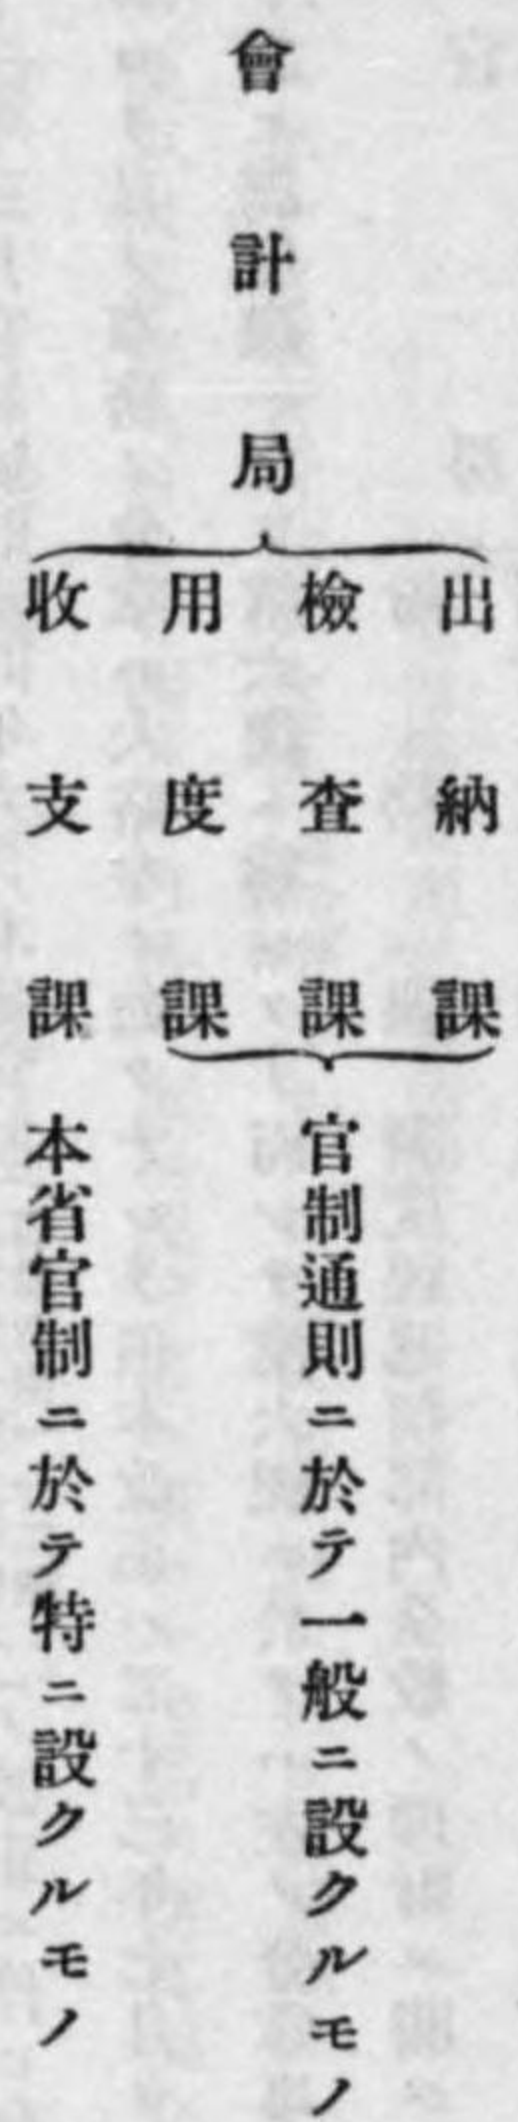 會計局
出納課
檢査課
用度課
官制通則ニ於テ一般ニ設クルモノ
收支課
本省官制ニ於テ特ニ設クルモノ